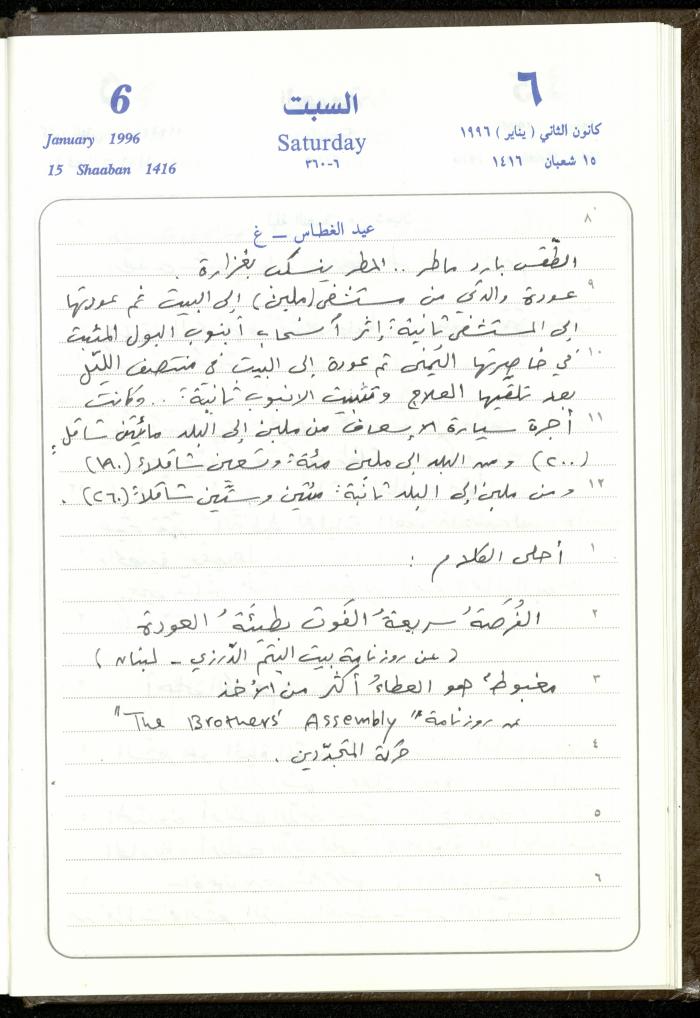 6
January 1996
15 Shaaban 1416
السبت
Saturday
٦-٣٦٠
٦
كانون الثاني ( يناير ) ١٩٩٦
١٥ شعبان ١٤١٦
٨
عيد الغطاس – غ
الطّقس بارد ماطر .. المطر ينسكب بغزارة .
٩
عودة والدتي من مستشفى (ملبن) إلى البيت ثم عودتها
إلى المستشفى ثانيةً إثر انسحاب أنبوب البول المثبت
١٠
في خاصرتها اليُمنى ثم عودة إلى البيت في منتصف الليّل
بعد تلقّيها العلاج وتثبيت الانبوب ثانيّةً .. وكانت
١١
أجرة سيارة الإسعاف من ملبن إلى البلد مائتين شاقل
(٢٠٠) ومن البلد الى ملبن مئة وتسعين شاقلاً (١٩٠)
١٢
ومن ملبن إلى البلد ثانيّة : مئتين وستّين شاقلاً (٢٦٠) .
١
أحلى الكلام :
٢
الفُرصَةُ سريعةُ الفَوت بطيئَةُ العودة
( عن روزنامة بيت اليتيم الدّرزي – لبنان )
٣
مغبوطٌ هو العطاءُ أكثر من الأخذ
عن روزنامة "The Brothers' Assembly"
٤
حركة المتجدّدين .
٥
٦